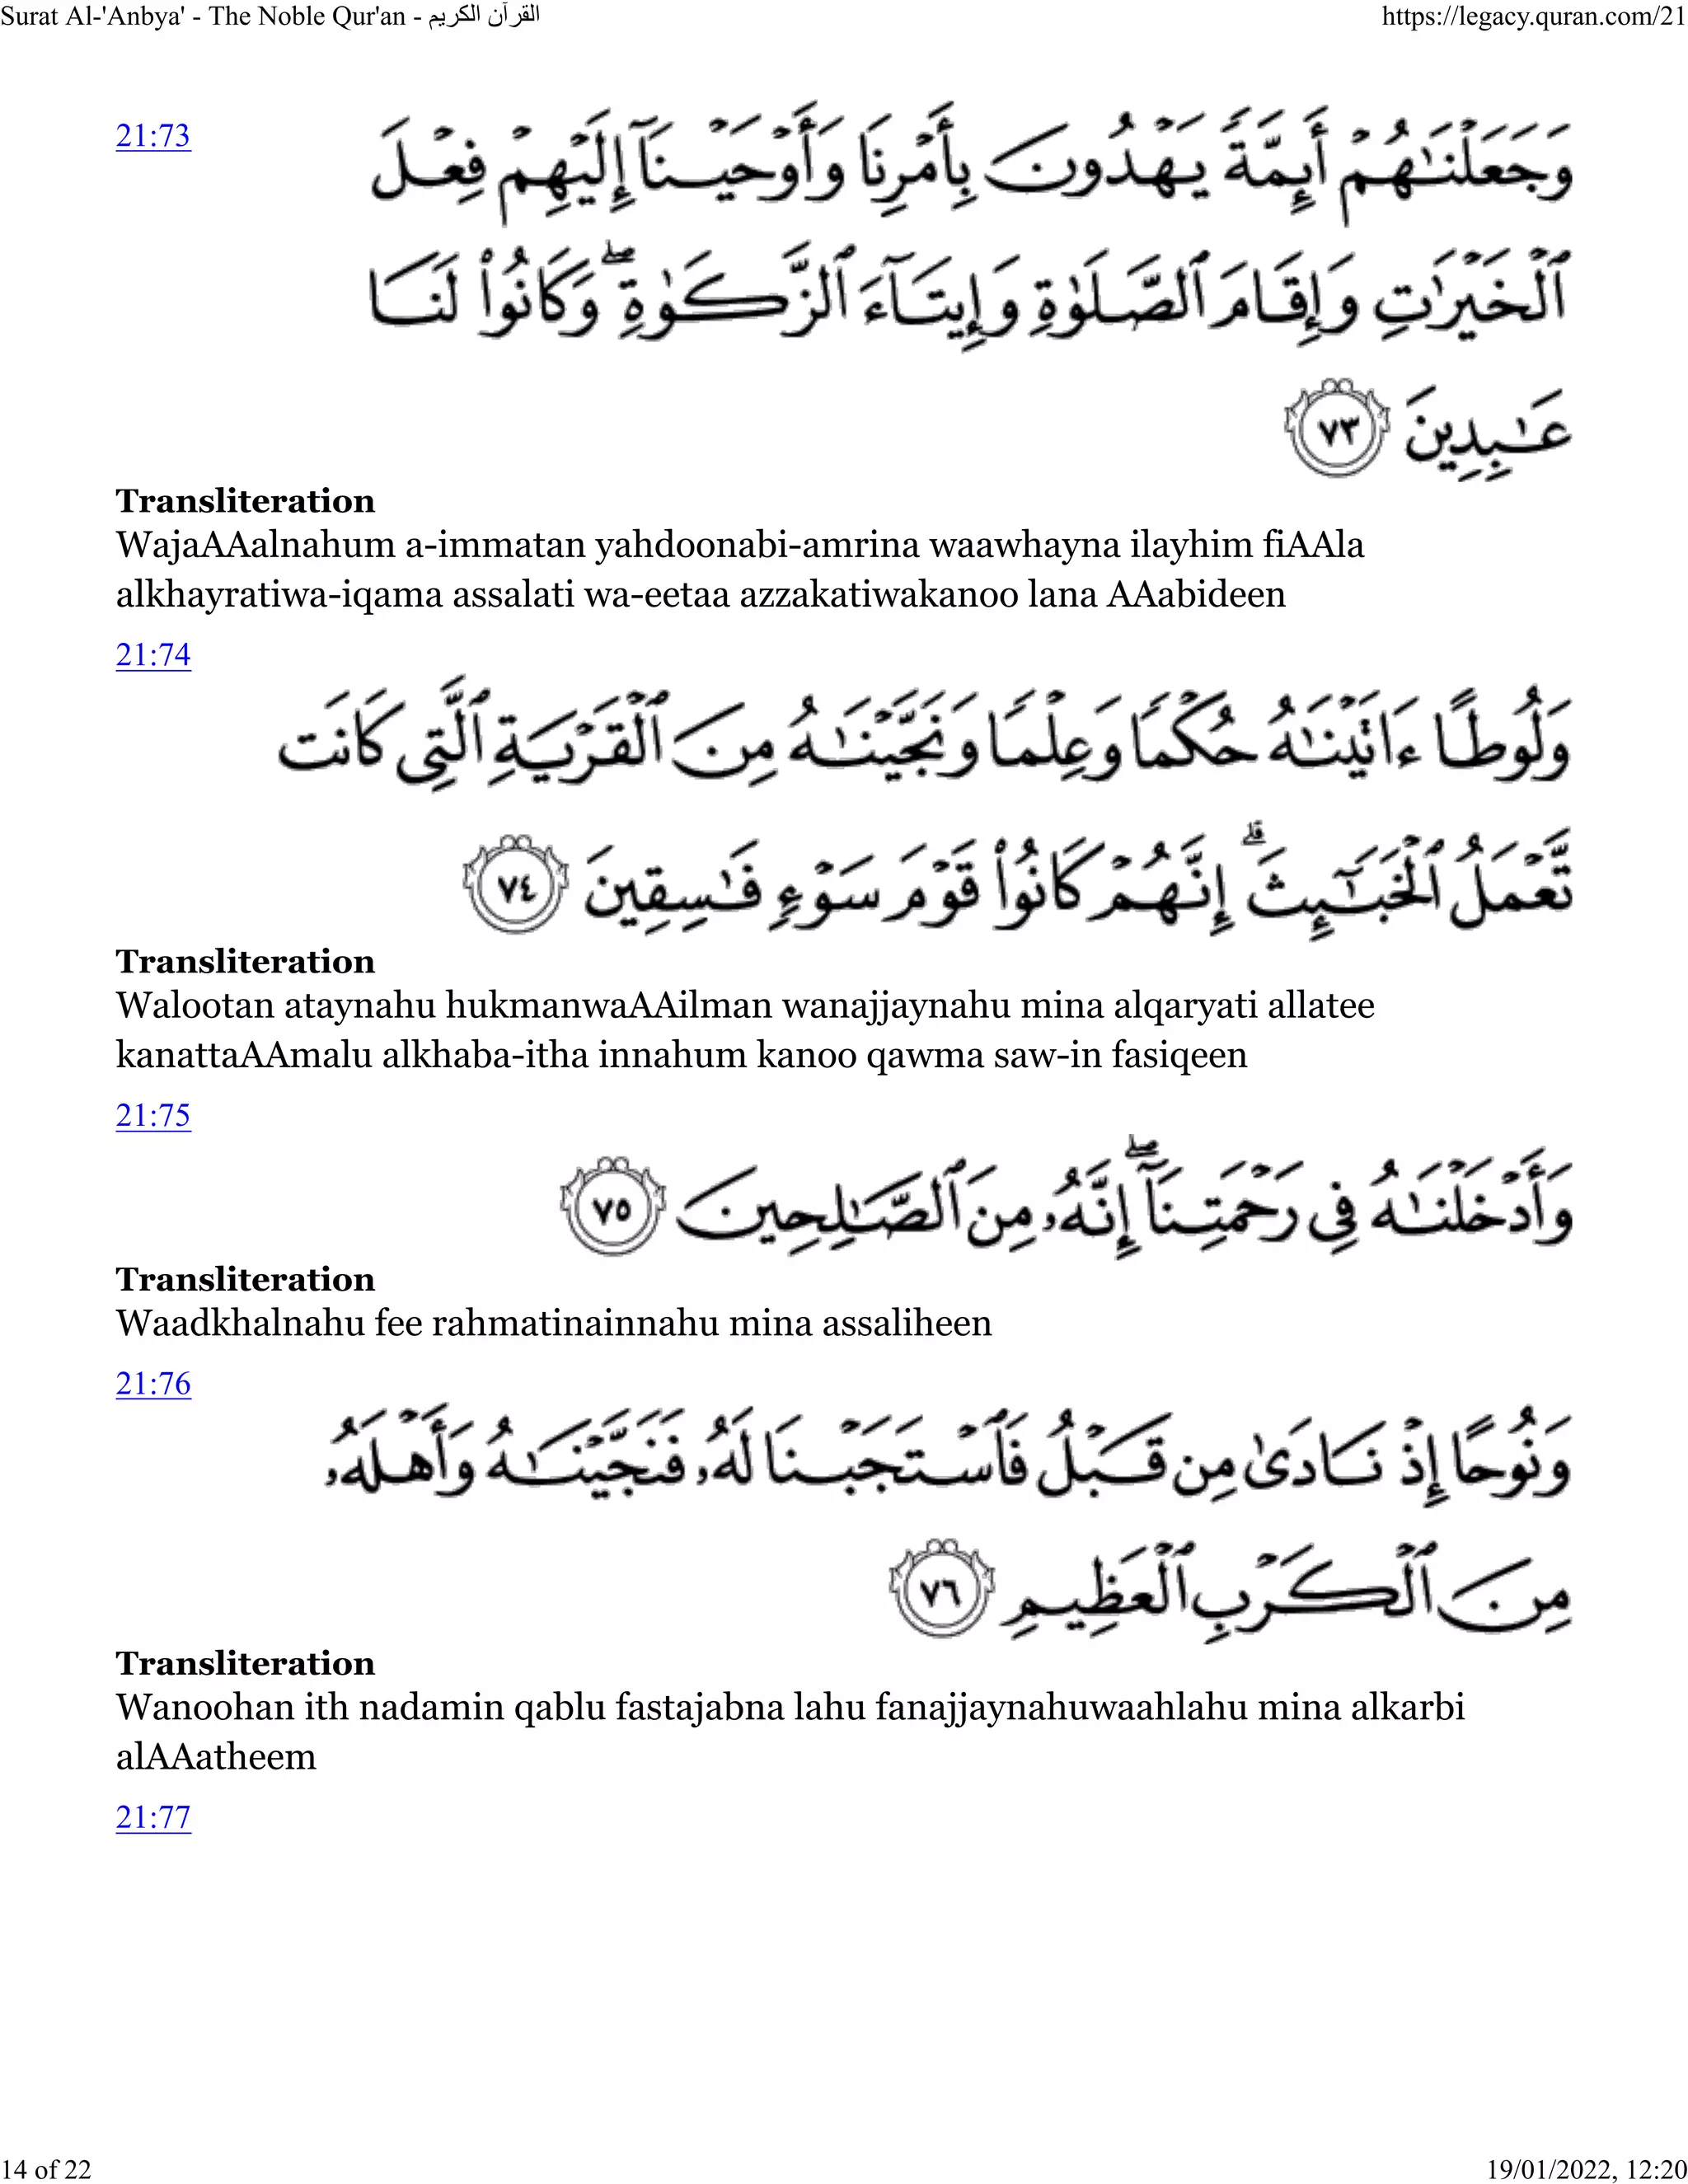 Surat Al-'Anbya' - The Noble Qur'an - القرآن الكريم
https://legacy.quran.com/21
21:73
وَجَعَلْنَٰهُمْ أَئِمَّةً يَهْدُونَ بِأَمْرِنَا وَأَوْحَيْنَآ إِلَيْهِمْ فِعْلَ
ٱلْخَيْرَٰتِ وَإِقَامَ ٱلصَّلَوٰةِ وَإِيتَآءَ ٱلزَّكَوٰةِ ۖ وَكَانُوا۟ لَنَا
عَٰبِدِينَ ٧٣
Transliteration
WajaAAalnahum a-immatan yahdoonabi-amrina waawhayna ilayhim fiAAla
alkhayratiwa-iqama assalati wa-eetaa azzakatiwakanoo lana AAabideen
21:74
وَلُوطًا ءَاتَيْنَٰهُ حُكْمًا وَعِلْمًا وَنَجَّيْنَٰهُ مِنَ ٱلْقَرْيَةِ ٱلَّتِى كَانَت
تَّعْمَلُ ٱلْخَبَٰٓئِثَ ۗ إِنَّهُمْ كَانُوا۟ قَوْمَ سَوْءٍ فَٰسِقِينَ ٧٤
Transliteration
Walootan ataynahu hukmanwaAAilman wanajjaynahu mina alqaryati allatee
kanattaAAmalu alkhaba-itha innahum kanoo qawma saw-in fasiqeen
21:75
وَأَدْخَلْنَٰهُ فِى رَحْمَتِنَآ ۖ إِنَّهُۥ مِنَ ٱلصَّٰلِحِينَ ٧٥
Transliteration
Waadkhalnahu fee rahmatinainnahu mina assaliheen
21:76
وَنُوحًا إِذْ نَادَىٰ مِن قَبْلُ فَٱسْتَجَبْنَا لَهُۥ فَنَجَّيْنَٰهُ وَأَهْلَهُۥ
مِنَ ٱلْكَرْبِ ٱلْعَظِيمِ ٧٦
Transliteration
Wanoohan ith nadamin qablu fastajabna lahu fanajjaynahuwaahlahu mina alkarbi
alAAatheem
21:77
14 of 22
19/01/2022, 12:20